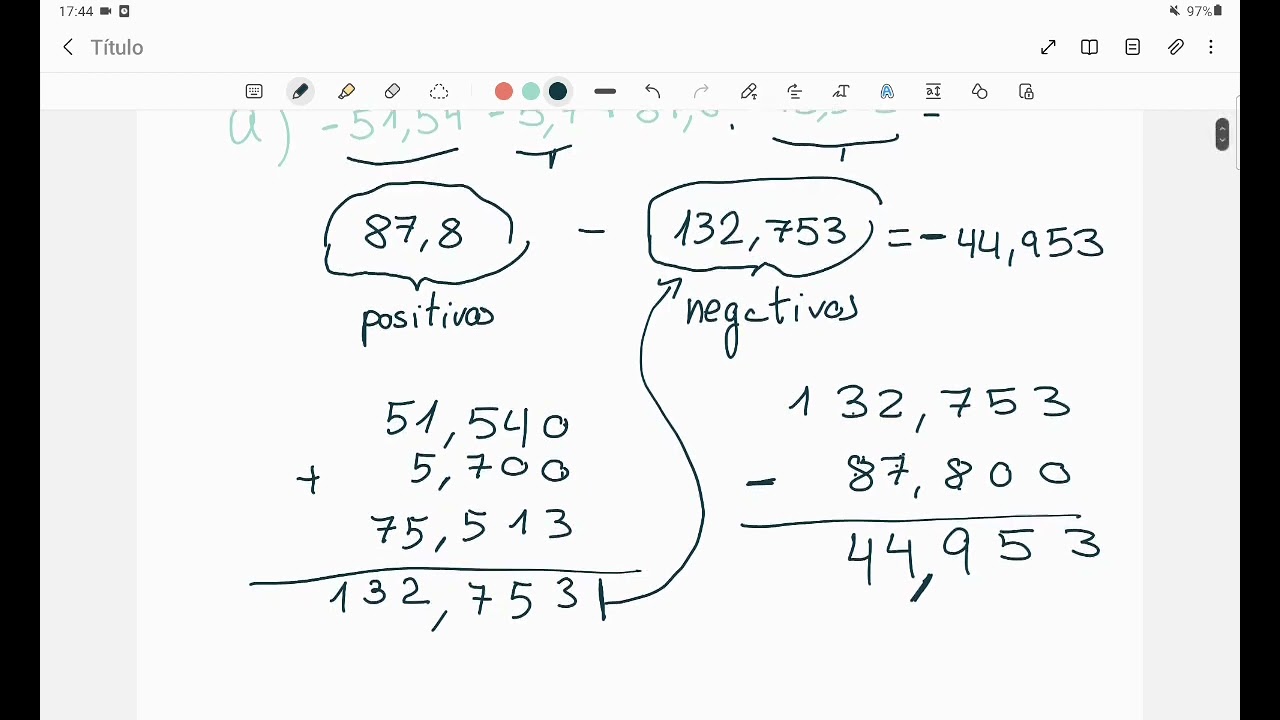 17:44 97%
Título
a) - 51,54 - 5,7 + 87,8
87,8 - 132,753 = - 44,953
positivos negativos
51,540
+ 5,700
75,513
132,753
132,753
- 87,800
44,953